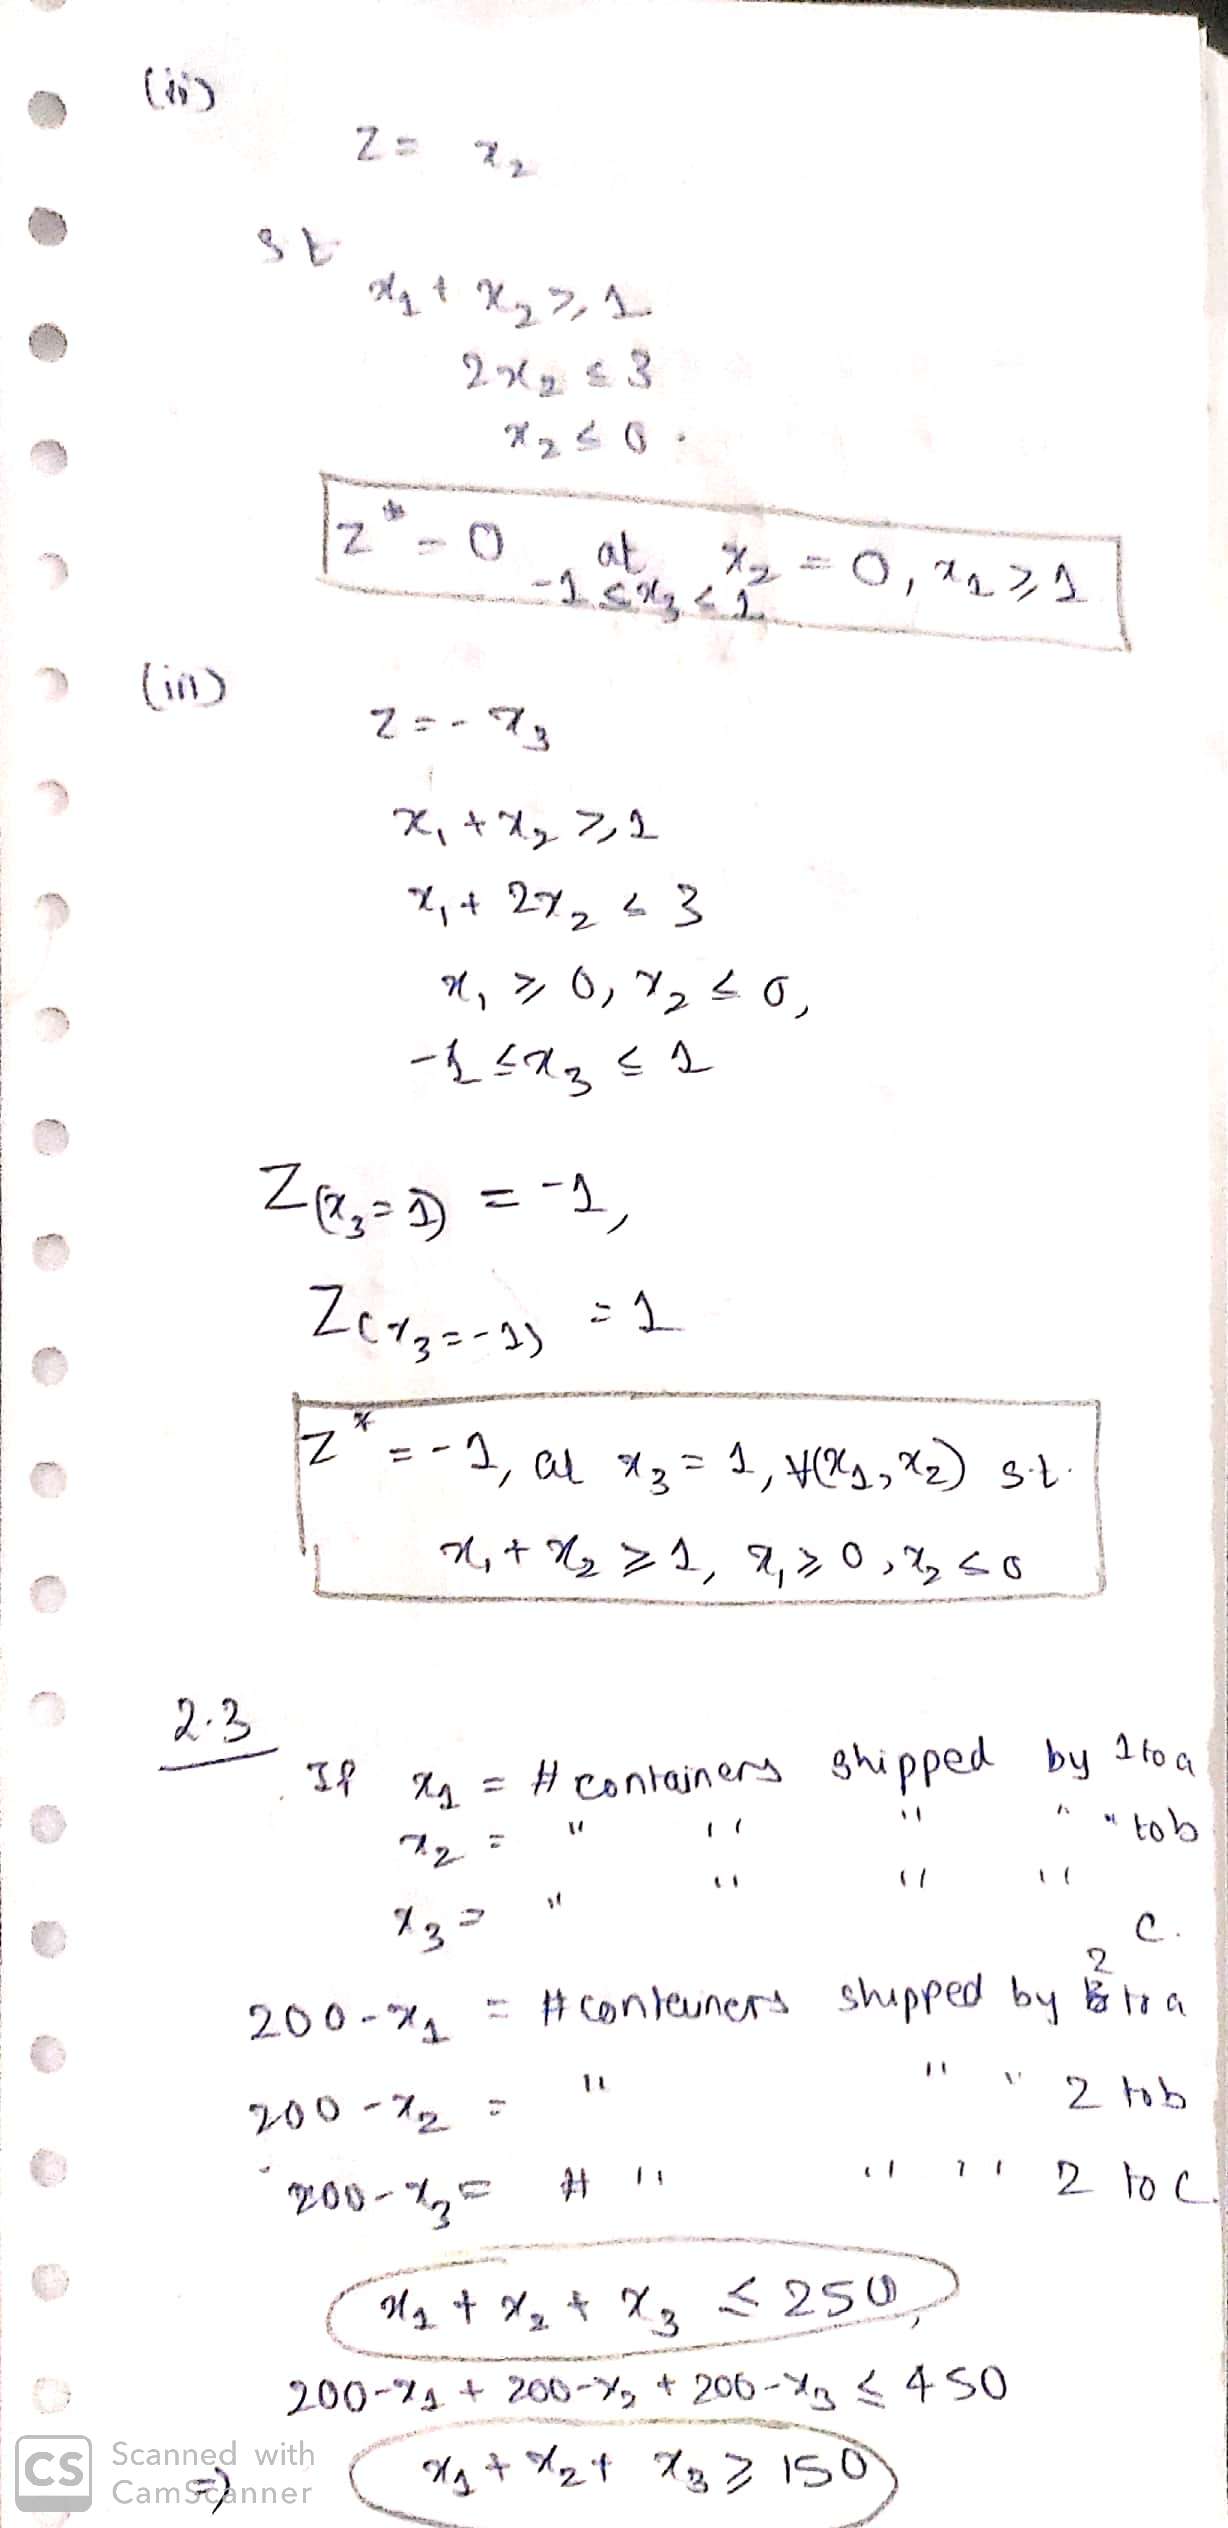 (ii)
Z = x₂
st
x₁ + x₂ ≥ 1
2x₂ ≤ 3
x₂ ≤ 0.
Z* = 0 at x₂ = 0, x₁ ≥ 1
-1 ≤ x₃ ≤ 1
(iii)
Z = -x₃
x₁ + x₂ ≥ 1
x₁ + 2x₂ ≤ 3
x₁ ≥ 0, x₂ ≤ 0,
-1 ≤ x₃ ≤ 1
Z(x₃ = 1) = -1,
Z(x₃ = -1) = 1
Z* = -1, at x₃ = 1, ∀(x₁, x₂) s.t.
x₁ + x₂ ≥ 1, x₁ ≥ 0, x₂ ≤ 0
2.3
If x₁ = # containers shipped by 1 to a
x₂ = " " " " " to b
x₃ = " " " " c.
200 - x₁ = # containers shipped by 2 to a
200 - x₂ = " " " 2 to b
200 - x₃ = # " " " 2 to c.
x₁ + x₂ + x₃ ≤ 250,
200-x₁ + 200-x₂ + 200-x₃ ≤ 450
⇒ x₁ + x₂ + x₃ ≥ 150
CS Scanned with
CamScanner